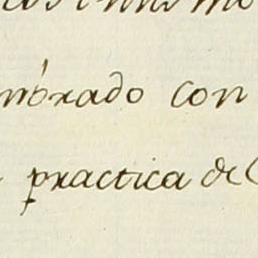 mbrado con
practica de